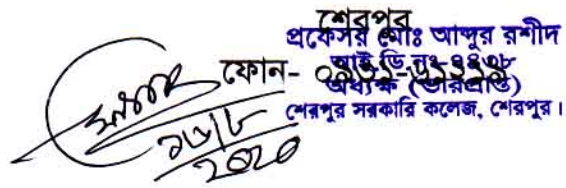 শেরপুর
প্রফেসর মোঃ আব্দুর রশীদ
আই.ডি.নং-৪৪৩৮
ফোন-
অধ্যক্ষ (ভারপ্রাপ্ত)
শেরপুর সরকারি কলেজ, শেরপুর।
১৬/৮
২০২০